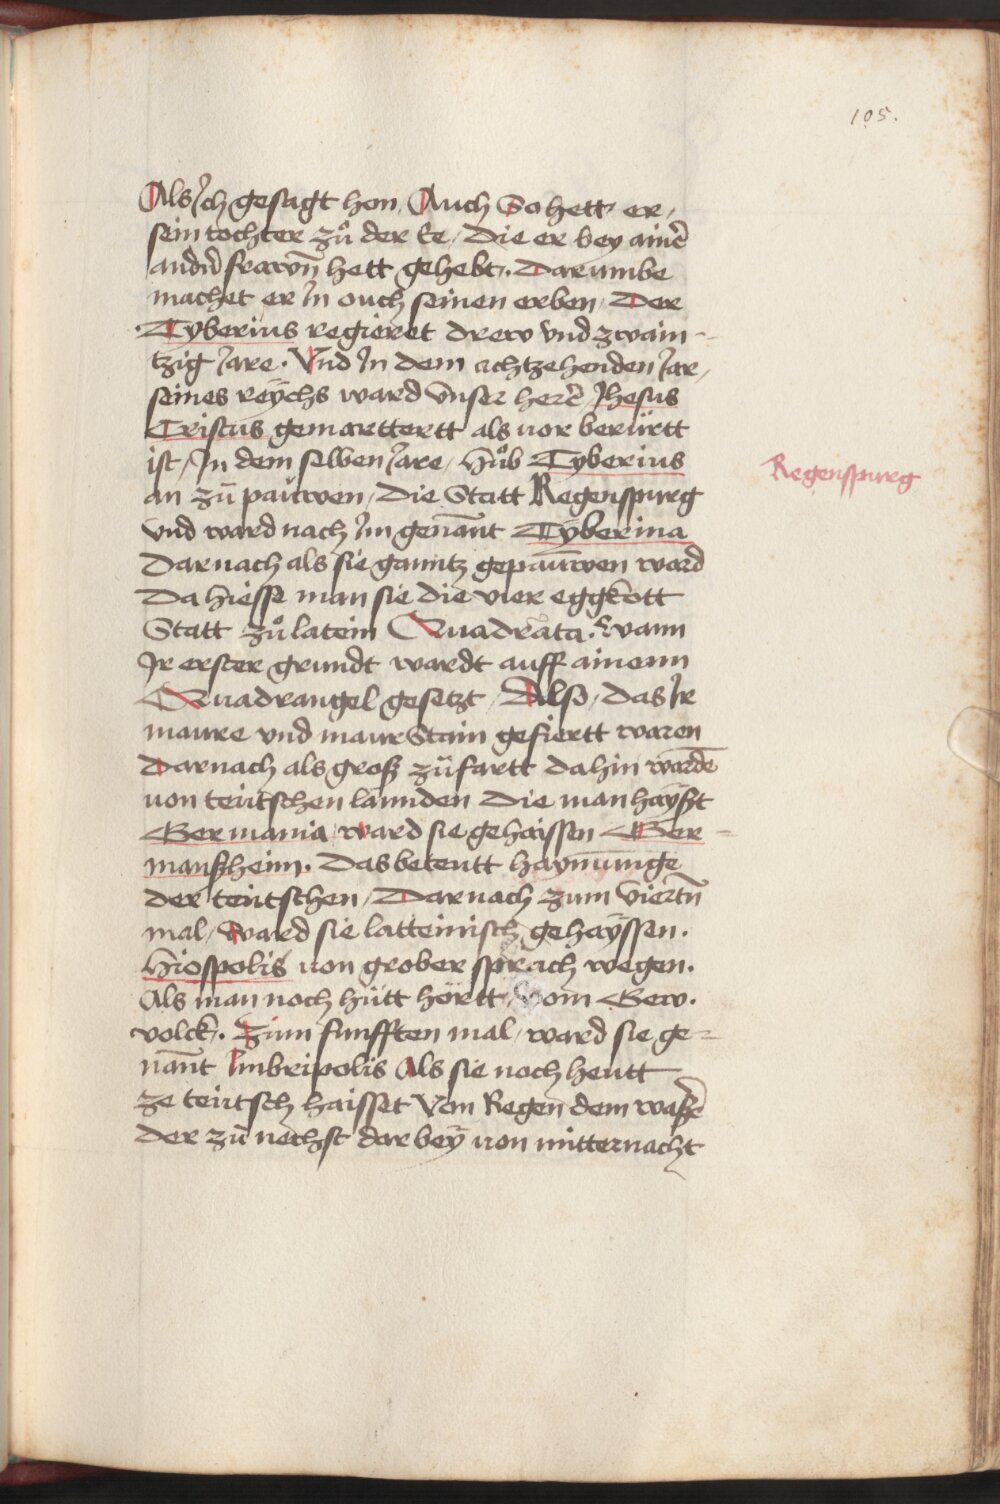 105.
Als Jch gesagt hon. Auch So hett er /
sein tochter zů der Ee / die er bey ainer̄
andrn̄ frawn̄ hett gehebt. Darumbe
machet er Jn ouch seinen erben / Der
Tyberius regieret drew vnd zwain-
tzig Jare. Vnd Jn dem achtzehenden Jar /
seines reÿchs ward vnser herr̄ Jhesus
Cristus gemarttertt als vor berürtt
ist / Jn dem selben Jare / Hůb Tyberius
an zů paüwen / die Statt Regenspurg
Regenspurg
vnd ward nach Jm genan̄t Tÿberina
Darnach als sie ganntz gepaůwen ward
Da hiesse man sie die vier eggk̄ott
Statt zů latein Quadrata. wann
Jr erster grundt wardt auff ainenn
Quadrangel gesetzt / Also / das Jr
maure vnd maur Stain gefiertt waren
Darnach als groß zůfartt dahin wardē
von teütschen lannden die man haÿßt
Germania / ward sie gehaissen Ger-
manßheim. Das beteutt haÿmůnge
der teütschen / Darnach zum viertn̄
mal / ward sie latteinisch gehaÿssen.
Hiospolis von grober sprach wegen.
Als man noch hütt hörtt / vom Gew.
volck. Zum funfften mal / ward sie ge-
nan̄t Jmbripolis Als sie noch heutt
ze teütsch haisset Von Regen dem waßer̄
der zů nechst darbeÿ von mitternacht